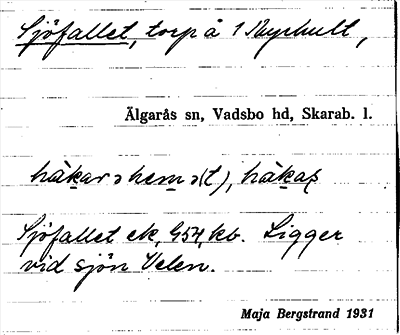 Sjöfallet, torp å 1 Ryrhult,
Älgarås sn, Vadsbo hd, Skarab. l.
håkar
Sjöfallet ek, G54, kb. Ligger
vid sjön Velen.
Maja Bergstrand 1931